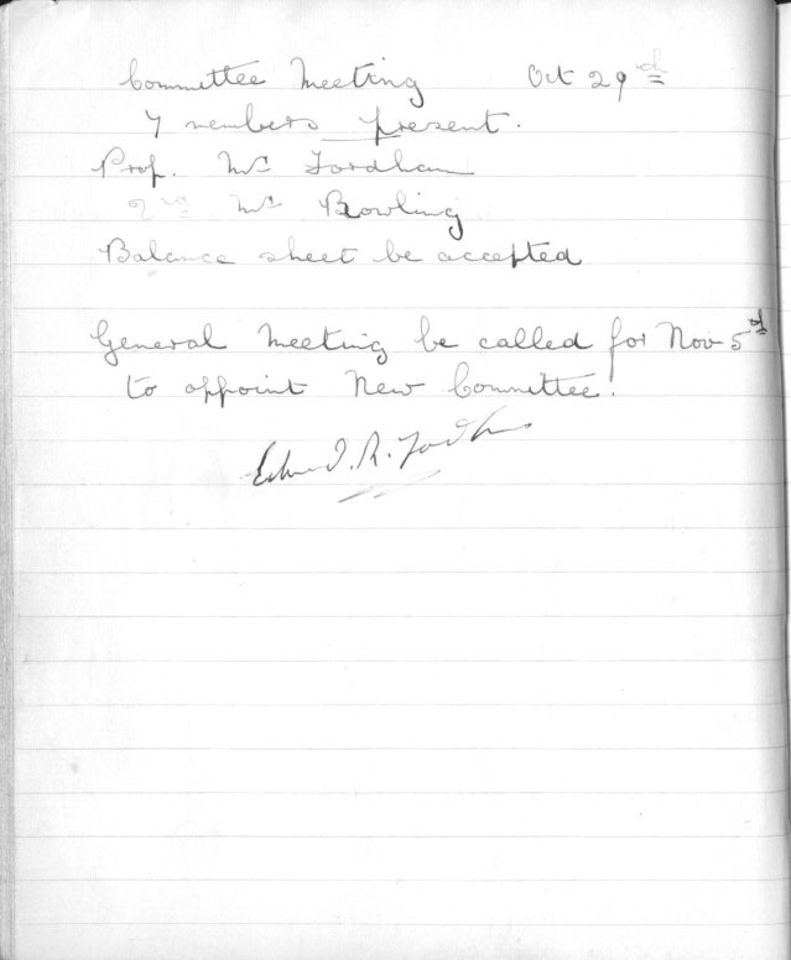 Committee Meeting Oct 29th
7 members present.
Prof. Mr Fordham
2nd Mr Bowling
Balance sheet be accepted
General Meeting be called for Nov 5th
to appoint New Committee.
Edward R. Fordham